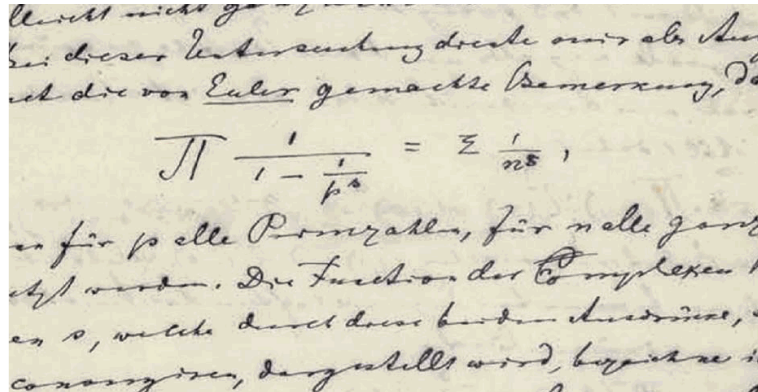 lleicht nicht
bei dieser Untersuchung diente mir als
die von Euler gemachte Bemerkung, da
∏ 1/(1 − 1/p^s) = Σ 1/n^s,
für p alle Primzahlen, für n alle ganz
etzt werden. Die Function der Complexen
en s, welche durch diese beiden Ausdrücke,
convergiren, dargestellt wird, bezeichne i